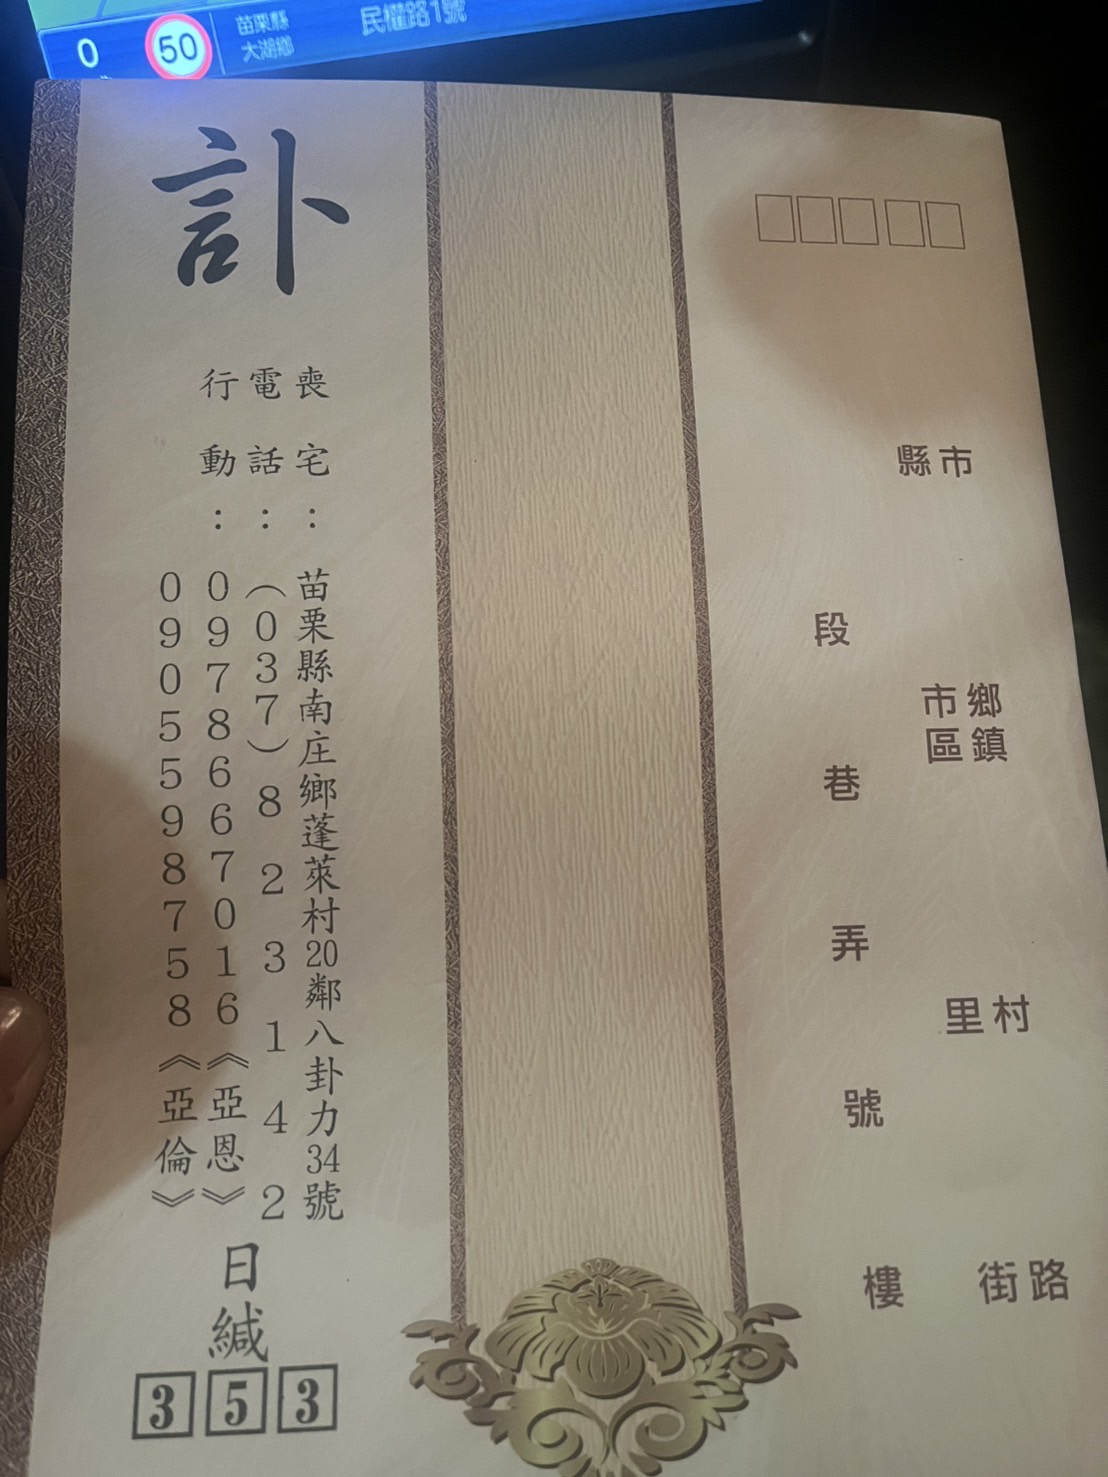 0
50
苗栗縣
大湖鄉
民權路1號
縣市
鄉鎮
市區
村里
路街
段
巷
弄
號
樓
訃
喪宅：苗栗縣南庄鄉蓬萊村20鄰八卦力34號
電話：(037)823142
行動：0978667016《亞恩》
0905598758《亞倫》
日
緘
353